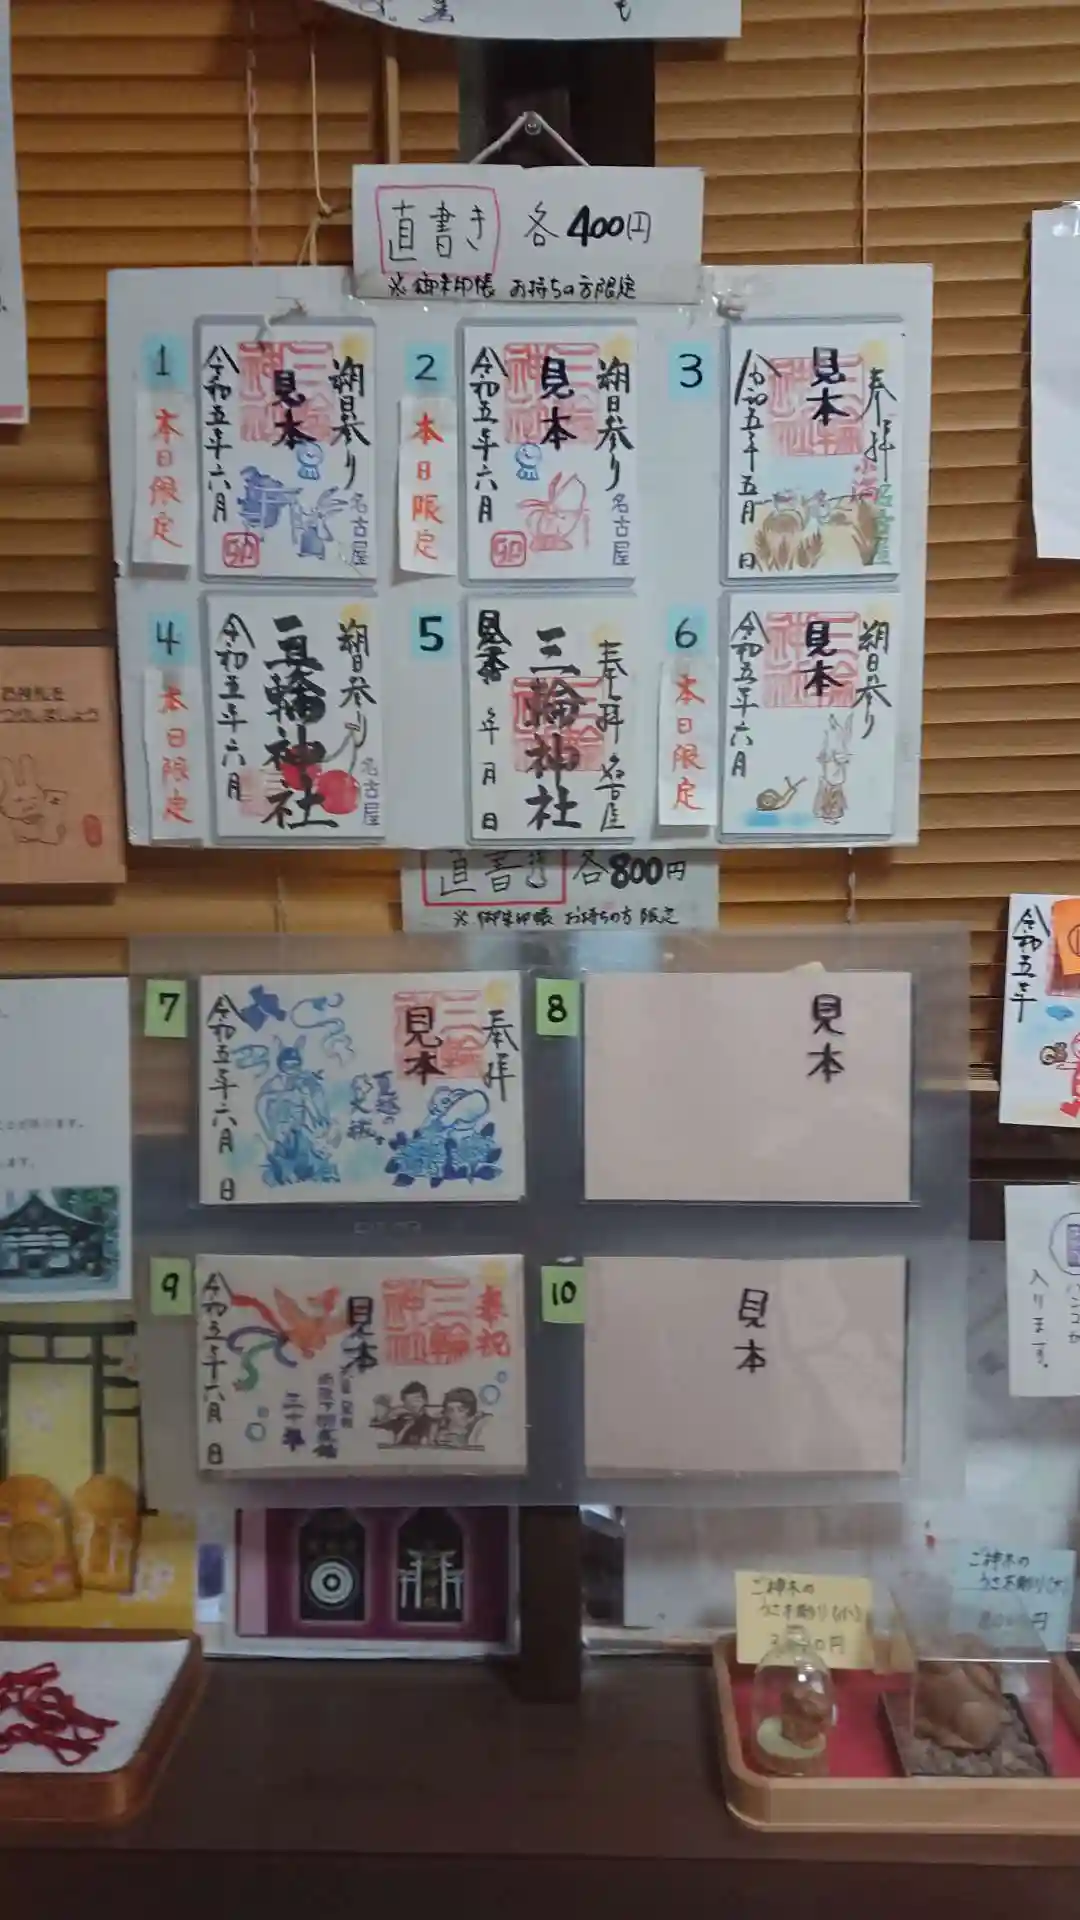 直書き 各400円
※御朱印帳 お持ちの方限定
1
本日限定
朔日参り
見本
三輪神社
令和五年六月
名古屋
卯
2
本日限定
朔日参り
見本
三輪神社
令和五年六月
名古屋
卯
3
奉拝
見本
三輪神社
令和五年五月 日
名古屋
4
本日限定
朔日参り
三輪神社
令和五年六月
名古屋
5
奉拝 名古屋
三輪神社
見本
年 月 日
6
本日限定
朔日参り
見本
三輪神社
令和五年六月
直書き 各800円
※御朱印帳 お持ちの方限定
7
奉拝
三輪
見本
夏越の
大祓
令和五年六月 日
8
見本
9
奉祝
三輪神社
見本
三十年
令和五年六月 日
10
見本
令和五年
入ります。
ご神木の
うさぎ彫り(小)
ご神木の
うさぎ彫り(大)